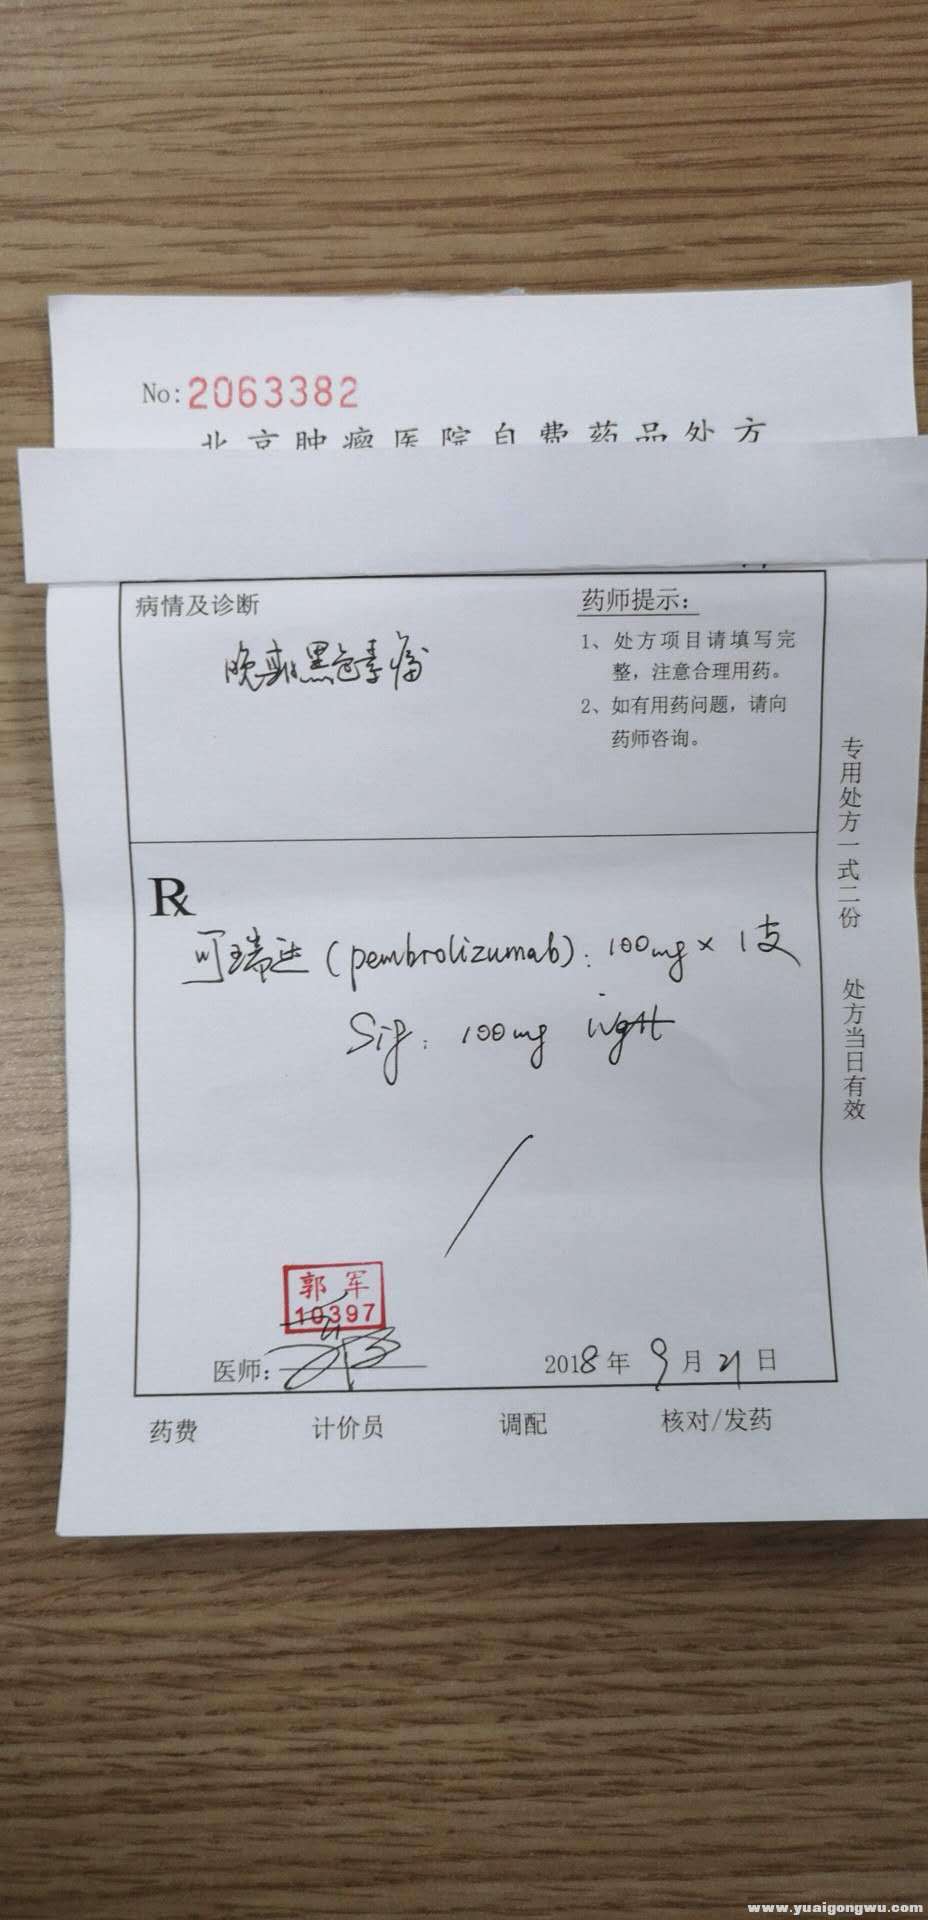 No: 2063382
北京肿瘤医院自费药品处方
病情及诊断
晚期黑色素瘤
药师提示：
1、处方项目请填写完
整，注意合理用药。
2、如有用药问题，请向
药师咨询。
Rx
可瑞达 (pembrolizumab): 100mg × 1支
Sig: 100mg ivgtt
郭军
10397
医师:
2018年9月21日
药费 计价员 调配 核对/发药
专用处方一式二份 处方当日有效
www.yuaigongwu.com